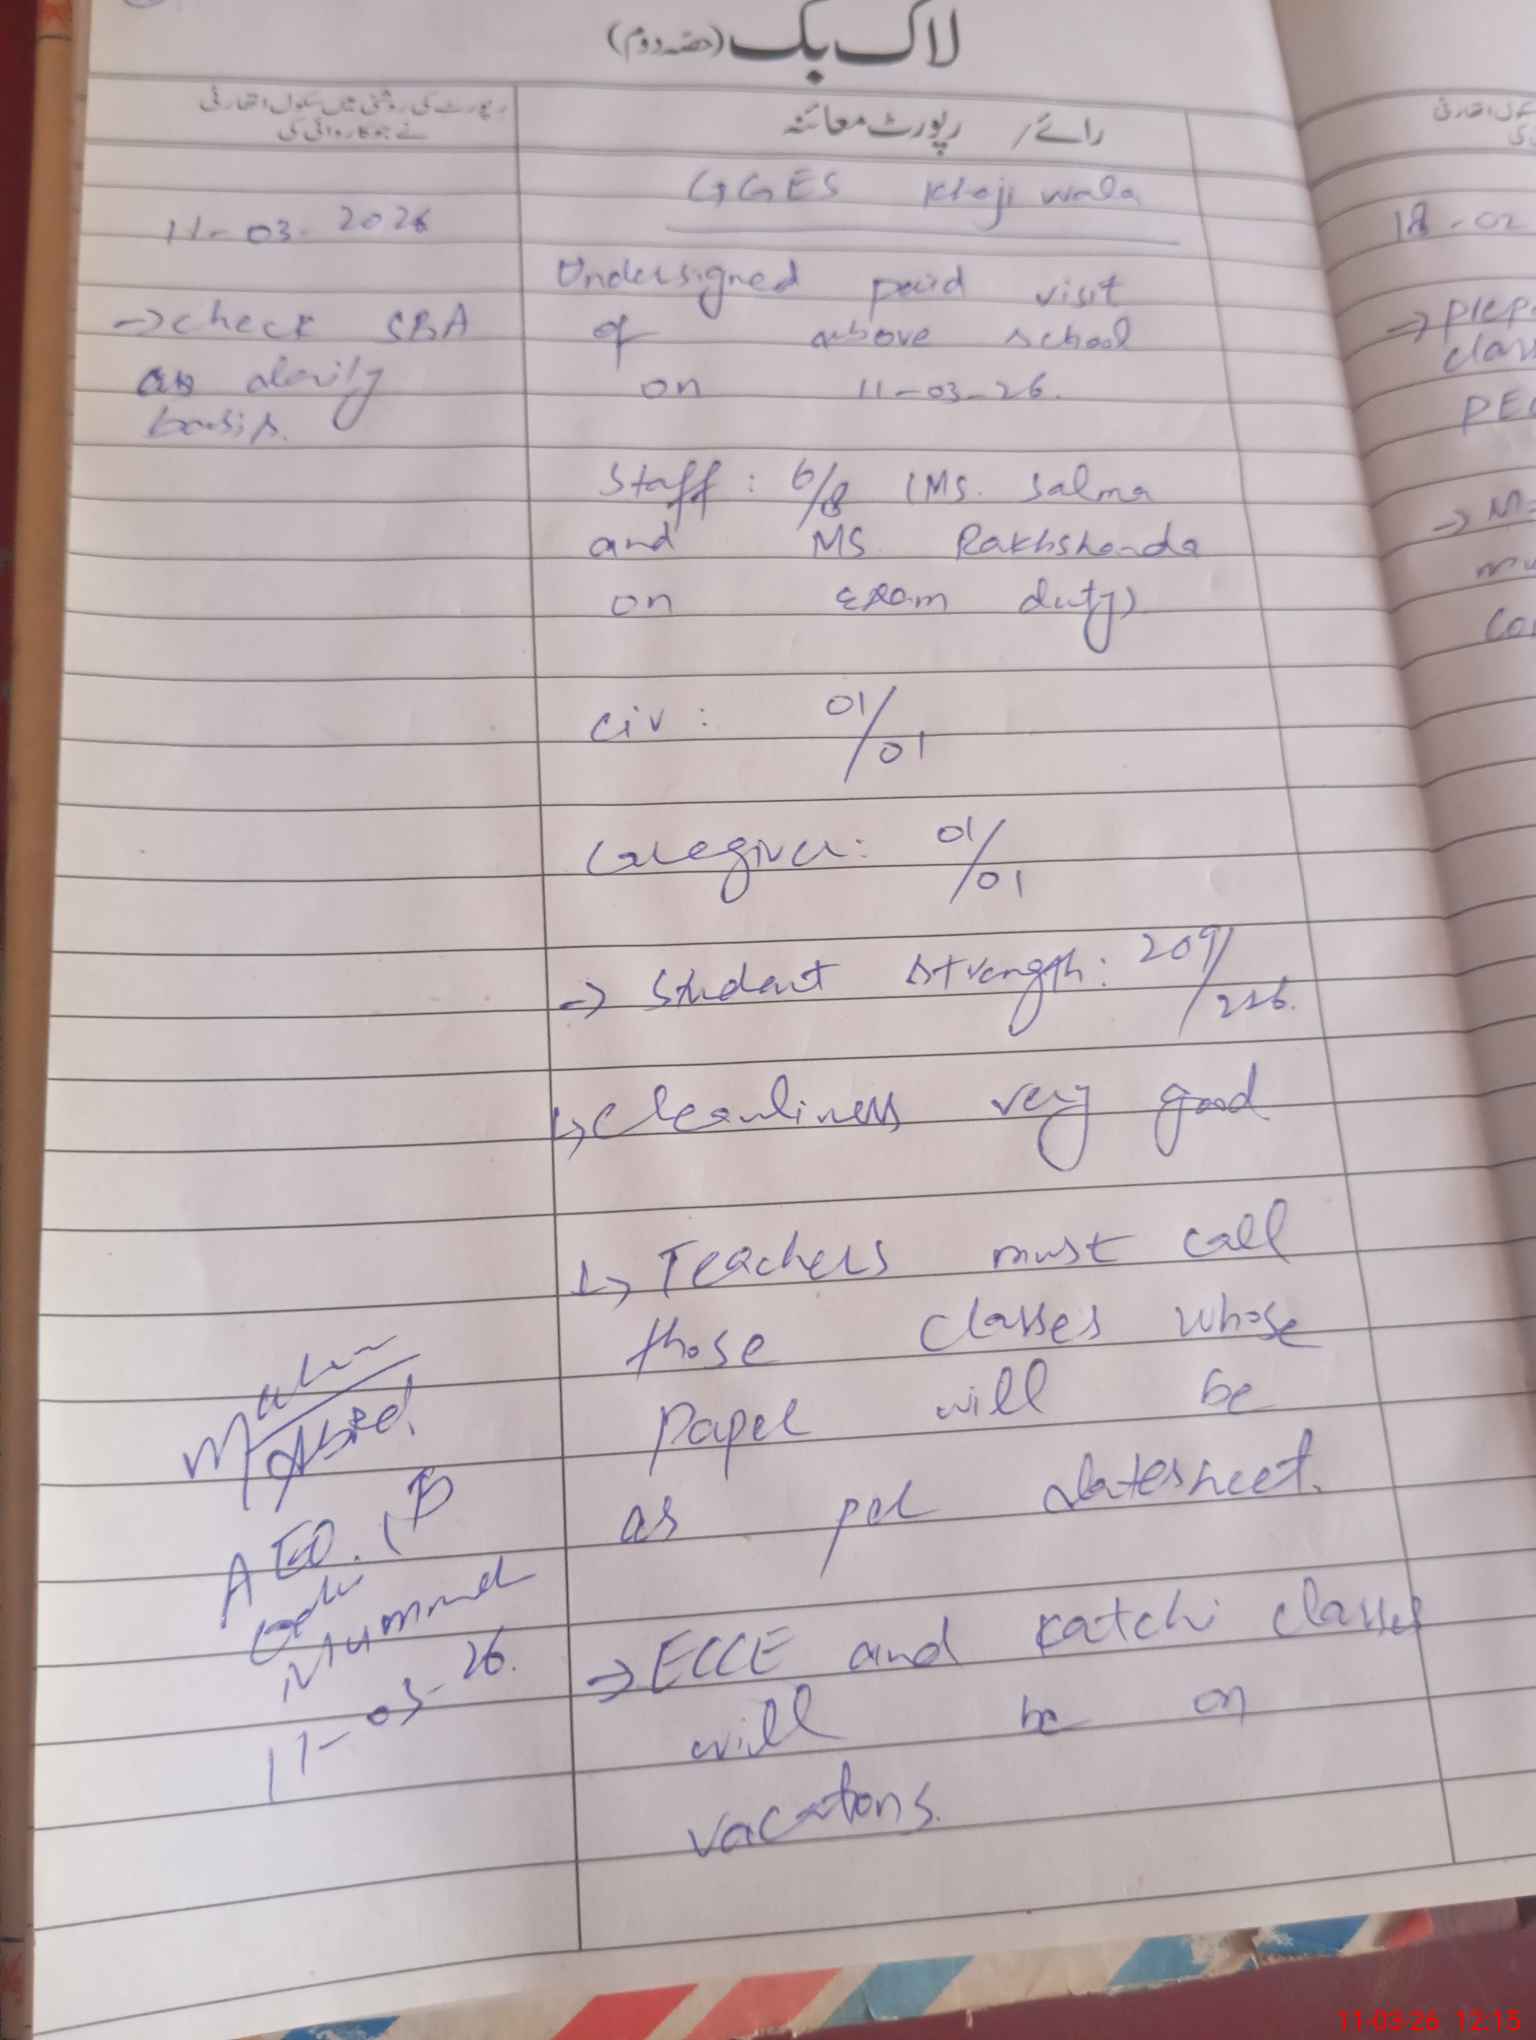 لاگ بک (حصہ دوم)
رپورٹ کی روشنی میں سکول اتھارٹی
نے جو کاروائی کی
رائے / رپورٹ معائنہ
11-03-2026
→ check SBA
on daily
basis.
GGES Khoji wala
Undersigned paid visit
of above school
on 11-03-26.
Staff : 6/8 (MS. Salma
and MS Rakhshanda
on exam duty)
civ : 01/01
Caregiver: 01/01
→ Student strength: 209/226.
↳ Cleanliness very good
↳ Teachers must call
those classes whose
paper will be
as per datesheet.
→ ECCE and Katchi classes
will be on
vacations.
Abid
AEO.
11-03-26.
سکول اتھارٹی
کی
18-02
→ prep
class
→ M
11-03-26 12:15